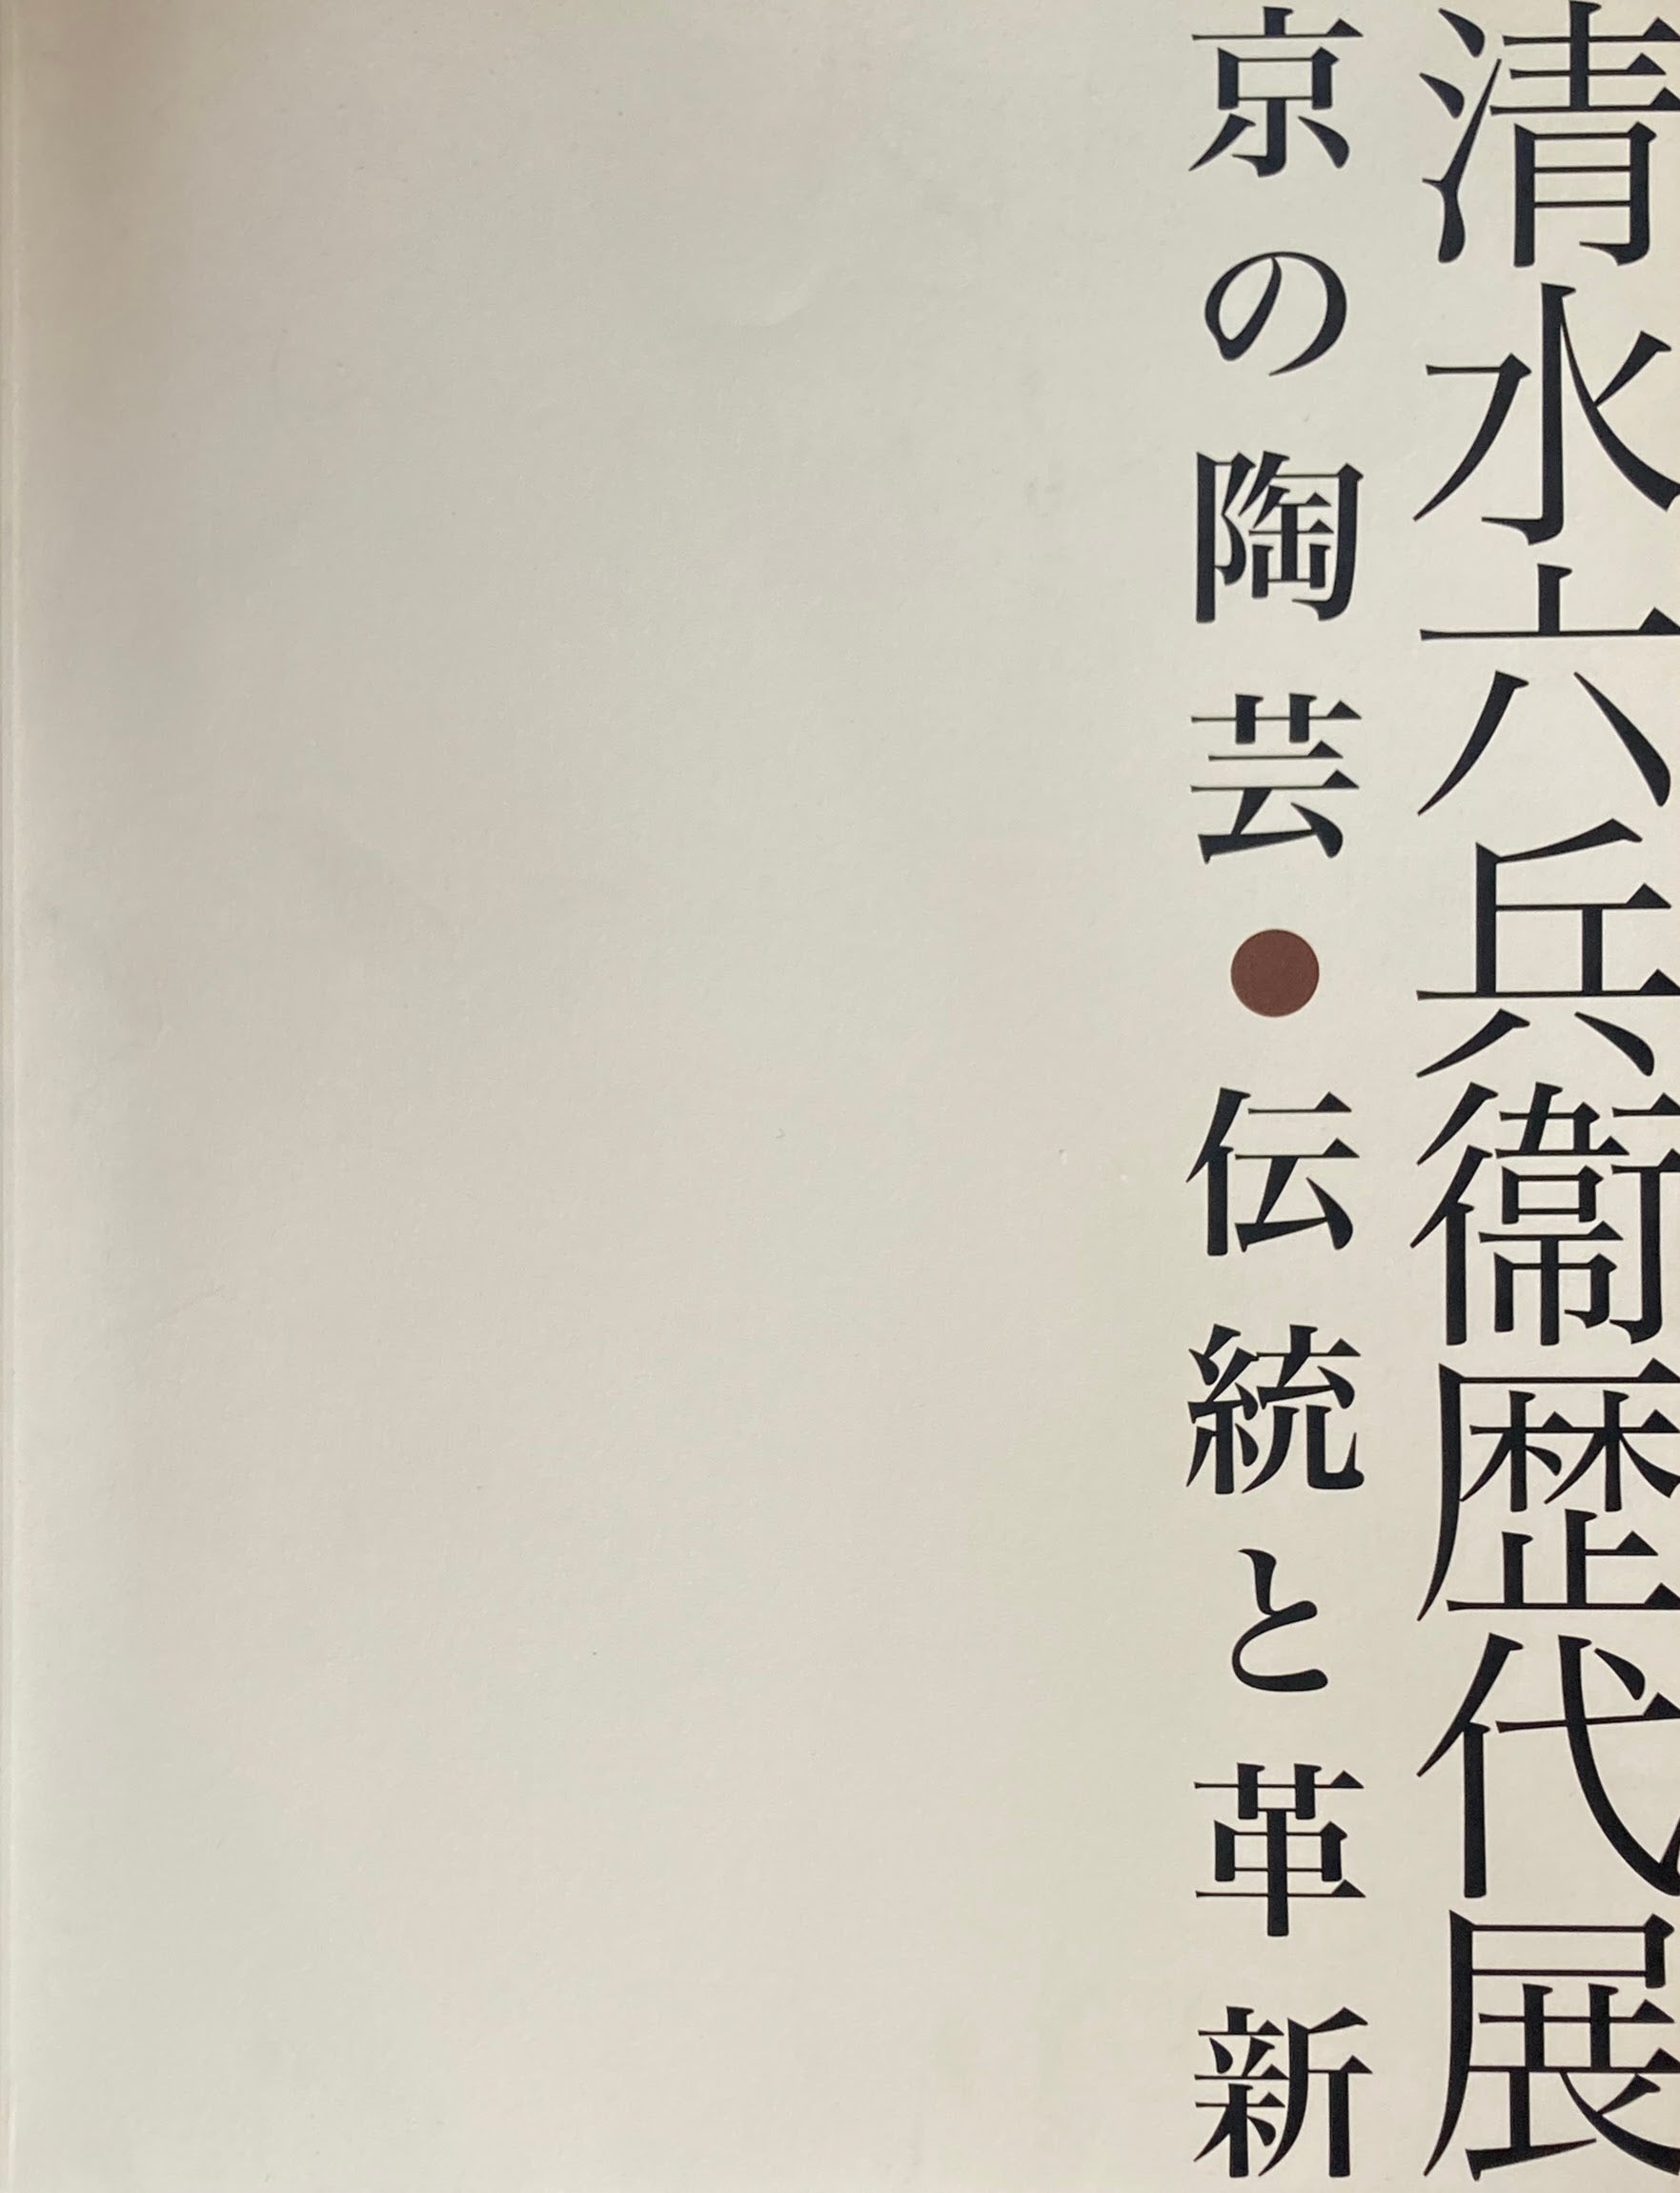 清水六兵衞歴代展
京の陶芸●伝統と革新